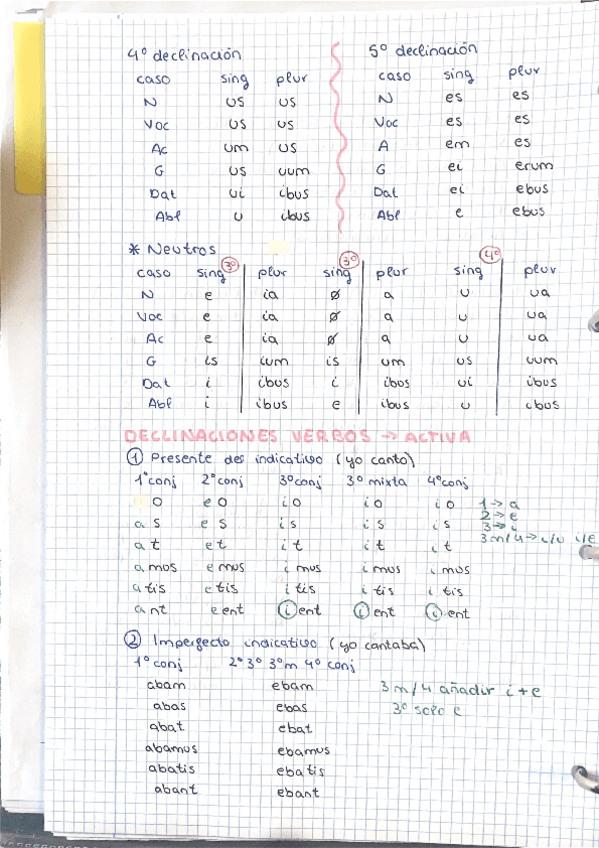 4º declinación
caso sing plur
N us us
Voc us us
Ac um us
G us uum
Dat ui ibus
Abl u ibus
5º declinación
caso sing plur
N es es
Voc es es
A em es
G ei erum
Dat ei ebus
Abl e ebus
* Neutros
3º 3º 4º
caso sing plur sing plur sing plur
N e ia ø a u ua
Voc e ia ø a u ua
Ac e ia ø a u ua
G is ium is um us uum
Dat i ibus i ibus ui ibus
Abl i ibus e ibus u ibus
DECLINACIONES VERBOS → ACTIVA
① Presente des indicativo (yo canto)
1ºconj 2ºconj 3ºconj 3º mixta 4ºconj
o eo io io io
as es is is is
at et it it it
amos emos imos imus imos
atis etis itis itis itis
ant eent ient ient ient
1 → a
2 → e
3 → i
3m/4 → i/u i/E
② Imperfecto indicativo (yo cantaba)
1º conj 2º 3º 3ºm 4º conj
abam ebam
abas ebas
abat ebat
abamus ebamus
abatis ebatis
abant ebant
3 m/4 añadir i+e
3º solo e